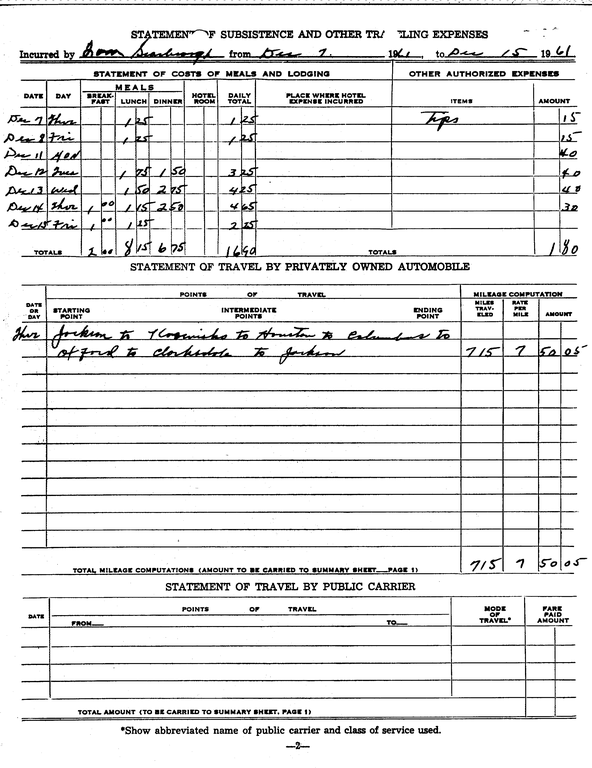 STATEMENT OF SUBSISTENCE AND OTHER TRA ELING EXPENSES
Incurred by Tom Scarbrough from Dec 7. 1961 to Dec 15 1961
STATEMENT OF COSTS OF MEALS AND LODGING OTHER AUTHORIZED EXPENSES
DATE DAY MEALS BREAK-FAST LUNCH DINNER HOTEL ROOM DAILY TOTAL PLACE WHERE HOTEL EXPENSE INCURRED ITEMS AMOUNT
Dec 7 Thur 1 25 1 25 Tips 15
Dec 8 Fri 1 25 1 25 15
Dec 11 MON 40
Dec 12 Tues 1 75 1 50 3 25 40
Dec 13 Wed 1 50 2 75 4 25 40
Dec 14 Thur 1 00 1 15 2 50 4 65 30
Dec 15 Fri 1 00 1 25 2 25
TOTALS 2 00 8 15 6 75 16 90 TOTALS 1 80
STATEMENT OF TRAVEL BY PRIVATELY OWNED AUTOMOBILE
DATE OR DAY POINTS OF TRAVEL MILEAGE COMPUTATION
STARTING POINT INTERMEDIATE POINTS ENDING POINT MILES TRAV-ELED RATE PER MILE AMOUNT
Thur Jackson to Kosciusko to Houston to Columbus to
Oxford to Clarksdale to Jackson 715 7 50 05
TOTAL MILEAGE COMPUTATIONS (AMOUNT TO BE CARRIED TO SUMMARY SHEET PAGE 1) 715 7 50 05
STATEMENT OF TRAVEL BY PUBLIC CARRIER
DATE POINTS OF TRAVEL MODE OF TRAVEL* FARE PAID AMOUNT
FROM TO
TOTAL AMOUNT (TO BE CARRIED TO SUMMARY SHEET, PAGE 1)
*Show abbreviated name of public carrier and class of service used.
—2—